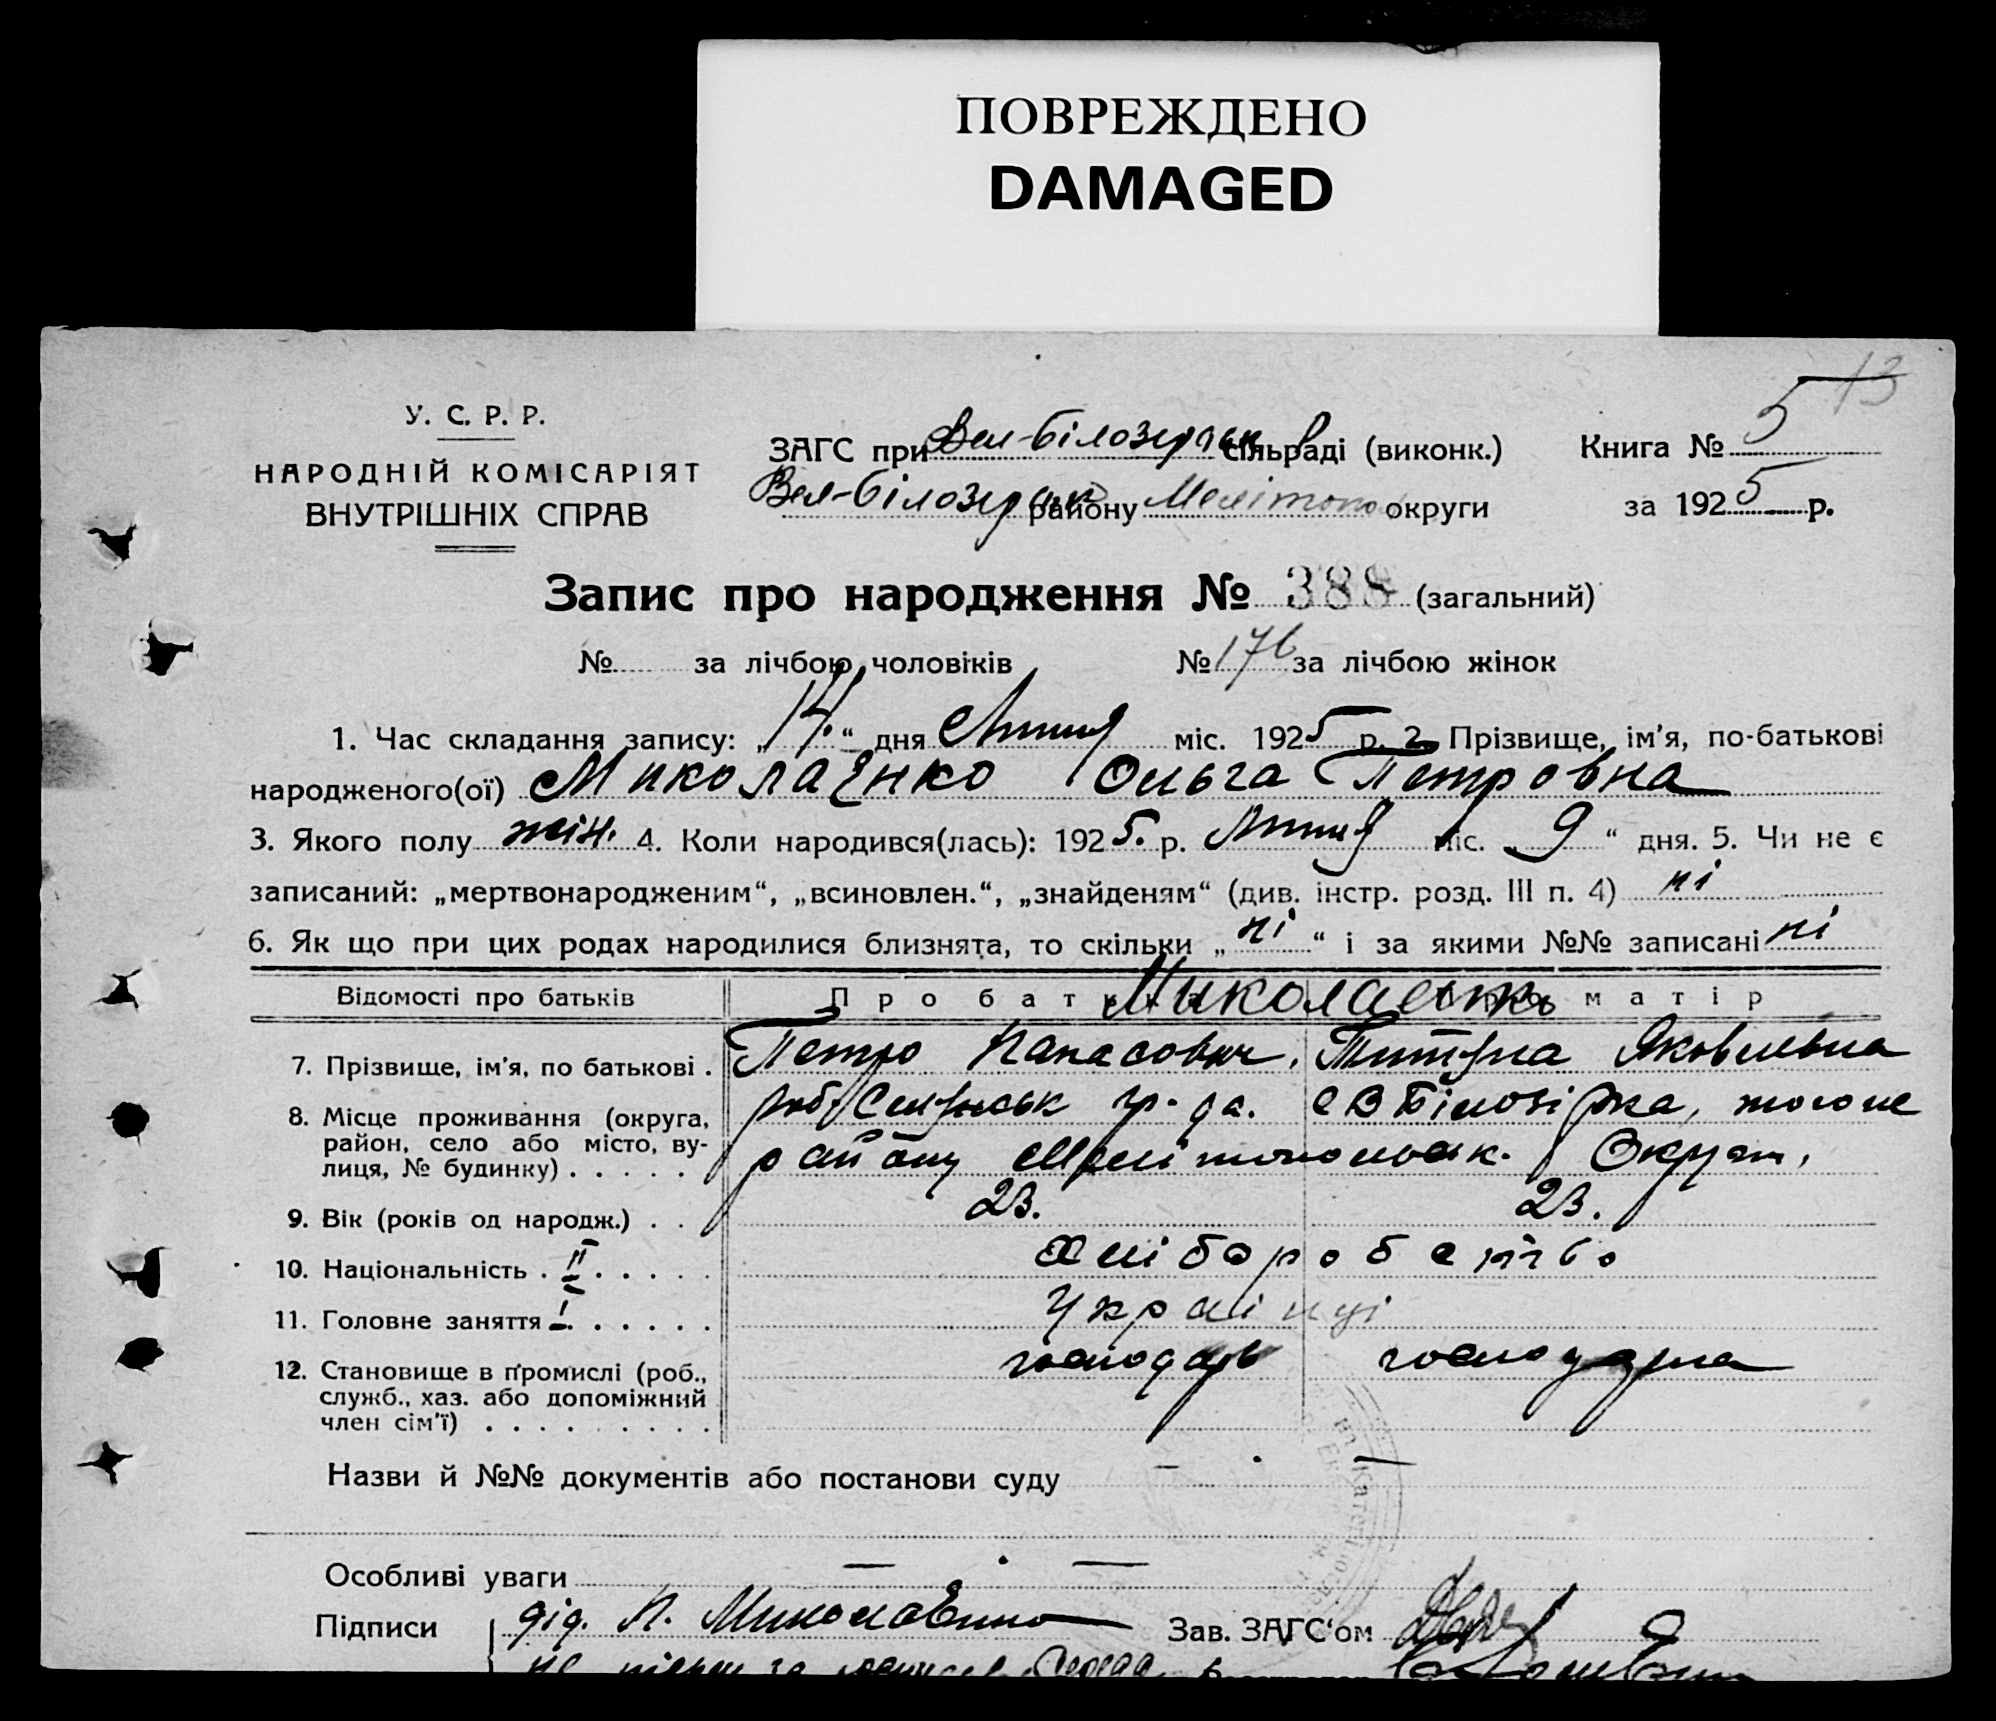 ПОВРЕЖДЕНО
DAMAGED
13
У. С. Р. Р.
НАРОДНІЙ КОМІСАРІЯТ
ВНУТРІШНІХ СПРАВ
ЗАГС при Вел-білозерськ сільраді (виконк.) Книга № 5
Вел-білозерськ району Мелітополь округи за 1925 р.
Запис про народження № 388 (загальний)
№ за лічбою чоловіків № 176 за лічбою жінок
1. Час складання запису: „14“ дня Липня міс. 1925 р. 2. Прізвище, ім'я, по-батькові
народженого(ої) Миколаєнко Ольга Петровна
3. Якого полу жін. 4. Коли народився(лась): 1925. р. Липня міс. „9“ дня. 5. Чи не є
записаний: „мертвонародженим“, „всиновлен.“, „знайденям“ (див. інстр. розд. III п. 4) ні
6. Як що при цих родах народилися близнята, то скільки „ні“ і за якими №№ записані ні
Відомості про батьків Про батька Миколаєнко Про матір
7. Прізвище, ім'я, по батькові . Петро Панасович, Яковлевна
8. Місце проживання (округа, гр-да. с В Білозірка, того же
район, село або місто, ву-
лиця, № будинку) . . . . . району Мелітопольськ. Округи,
9. Вік (років од народж.) . . 23. 23.
10. Національність . II . . . . . Хліборобство
11. Головне заняття I . . . . . . Українці
12. Становище в промислі (роб., господарь господарка
служб., хаз. або допоміжний
член сім'ї) . . . . . . . . .
Назви й №№ документів або постанови суду — . —
Особливі уваги — . —
Підписи дід. П. Миколаєнко Зав. ЗАГС'ом